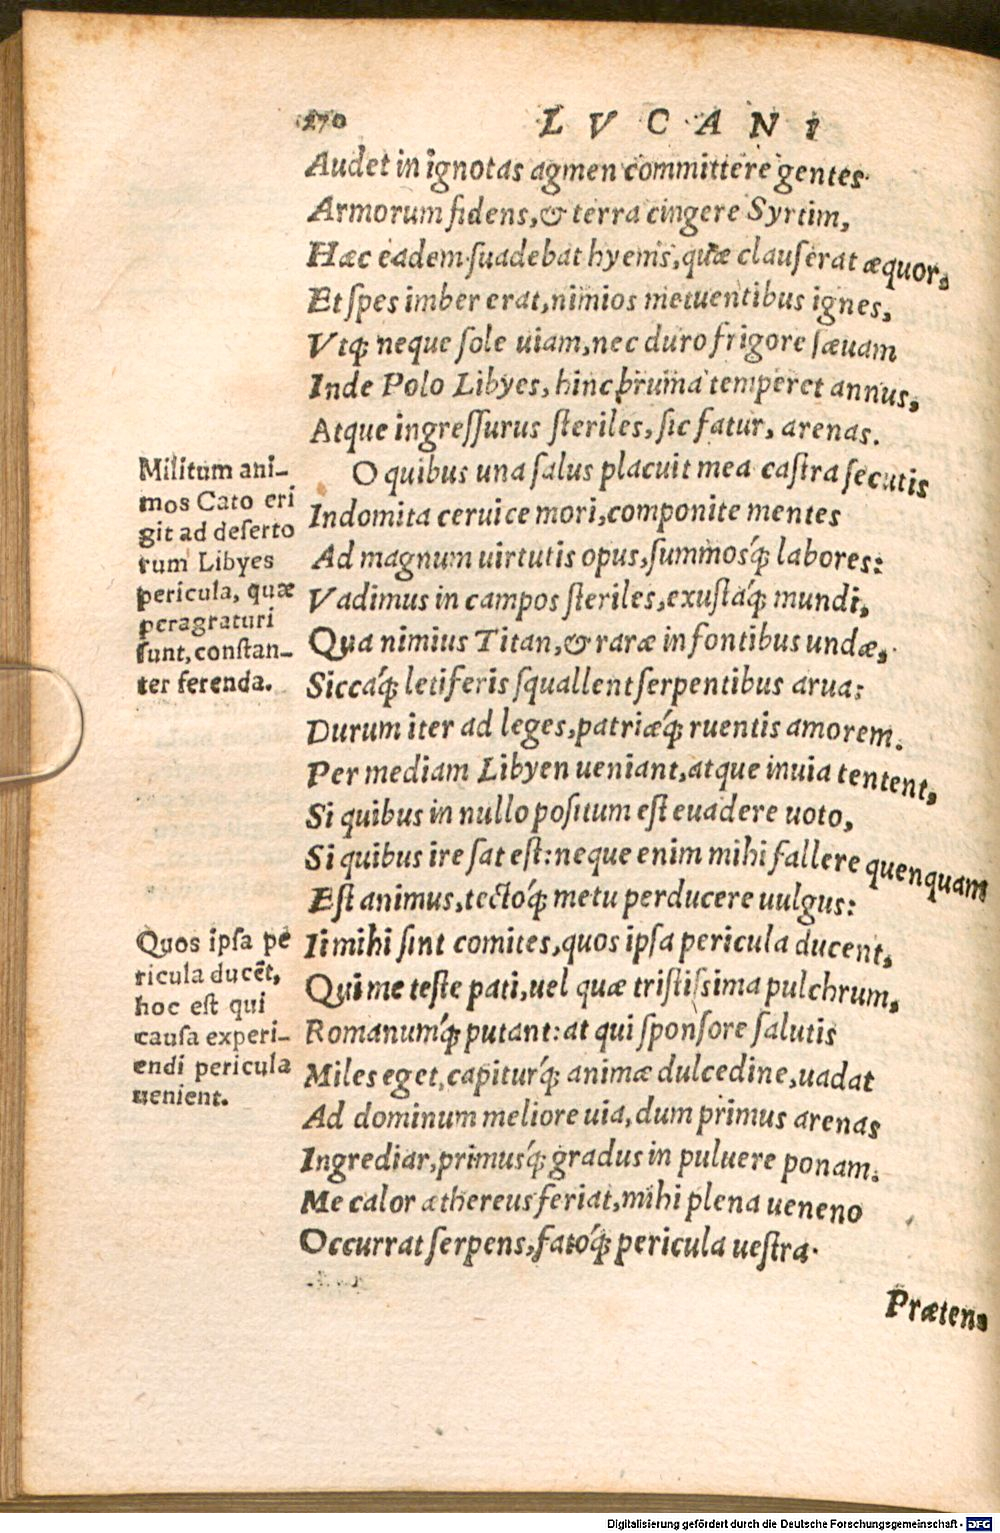 270 LVCANI
Audet in ignotas agmen committere gentes.
Armorum fidens, & terra cingere Syrtim,
Hæc eadem suadebat hyems, quæ clauserat æquor,
Et spes imber erat, nimios metuentibus ignes,
Vtq́; neque sole uiam, nec duro frigore sæuam
Inde Polo Libyes, hinc bruma temperet annus,
Atque ingressurus steriles, sic fatur, arenas.
O quibus una salus placuit mea castra secutis
Indomita ceruice mori, componite mentes
Ad magnum uirtutis opus, summosq́; labores:
Vadimus in campos steriles, exustaq́; mundi,
Qua nimius Titan, & raræ in fontibus undæ,
Siccaq́; letiferis squallent serpentibus arua:
Durum iter ad leges, patriæq́; ruentis amorem.
Per mediam Libyen ueniant, atque inuia tentent,
Si quibus in nullo positum est euadere uoto,
Si quibus ire sat est: neque enim mihi fallere quenquam
Est animus, tectoq́; metu perducere uulgus:
Ii mihi sint comites, quos ipsa pericula ducent,
Qui me teste pati, uel quæ tristissima pulchrum,
Romanumq́; putant: at qui sponsore salutis
Miles eget, capiturq́; animæ dulcedine, uadat
Ad dominum meliore uia, dum primus arenas
Ingrediar, primusq́; gradus in puluere ponam.
Me calor æthereus feriat, mihi plena ueneno
Occurrat serpens, fatoq́; pericula uestra.
Præten-
Militum ani-
mos Cato eri
git ad deserto
rum Libyes
pericula, quæ
peragraturi
sunt, constan-
ter ferenda.
Quos ipsa pe
ricula ducẽt,
hoc est qui
causa experi-
endi pericula
uenient.
Digitalisierung gefördert durch die Deutsche Forschungsgemeinschaft - DFG